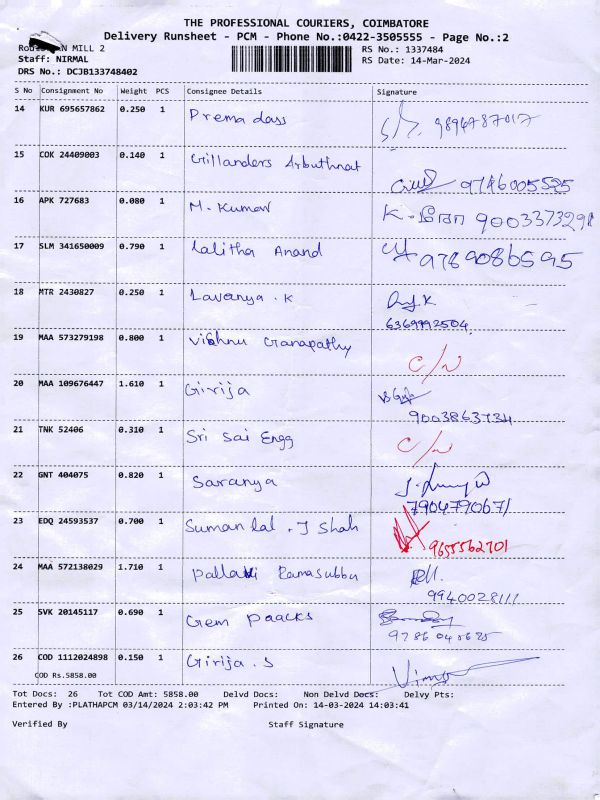 THE PROFESSIONAL COURIERS, COIMBATORE
Delivery Runsheet - PCM - Phone No.:0422-3505555 - Page No.:2
MILL 2
RS No.: 1337484
Staff: NIRMAL
RS Date: 14-Mar-2024
DRS No.: DCJB133748402
S No Consignment No Weight PCS Consignee Details Signature
14 KUR 695657862 0.250 1 Prema dass
15 COK 24409003 0.140 1 Gillanders Arbuthnat
9746005525
16 APK 727683 0.080 1 M. Kumar
17 SLM 341650009 0.790 1 Lalitha Anand 9789086595
18 MTR 2430827 0.250 1 Lavanya . K
6369992504
19 MAA 573279198 0.800 1 Vishnu Ganapathy
C/N
20 MAA 109676447 1.610 1 Girija
9003863734
21 TNK 52406 0.310 1 Sri Sai Engg C/N
22 GNT 404075 0.820 1 Saranya
7904790671
23 EDQ 24593537 0.700 1 Suman lal . J Shah
9655562701
24 MAA 572138029 1.710 1 Pallavi Ramasubbu
9940028111
25 SVK 20145117 0.690 1 Gem Paacks
26 COD 1112024898 0.150 1 Girija . S
COD Rs.5858.00
Tot Docs: 26 Tot COD Amt: 5858.00 Delvd Docs: Non Delvd Docs: Delvy Pts:
Entered By :PLATHAPCM 03/14/2024 2:03:42 PM Printed On: 14-03-2024 14:03:41
Verified By Staff Signature